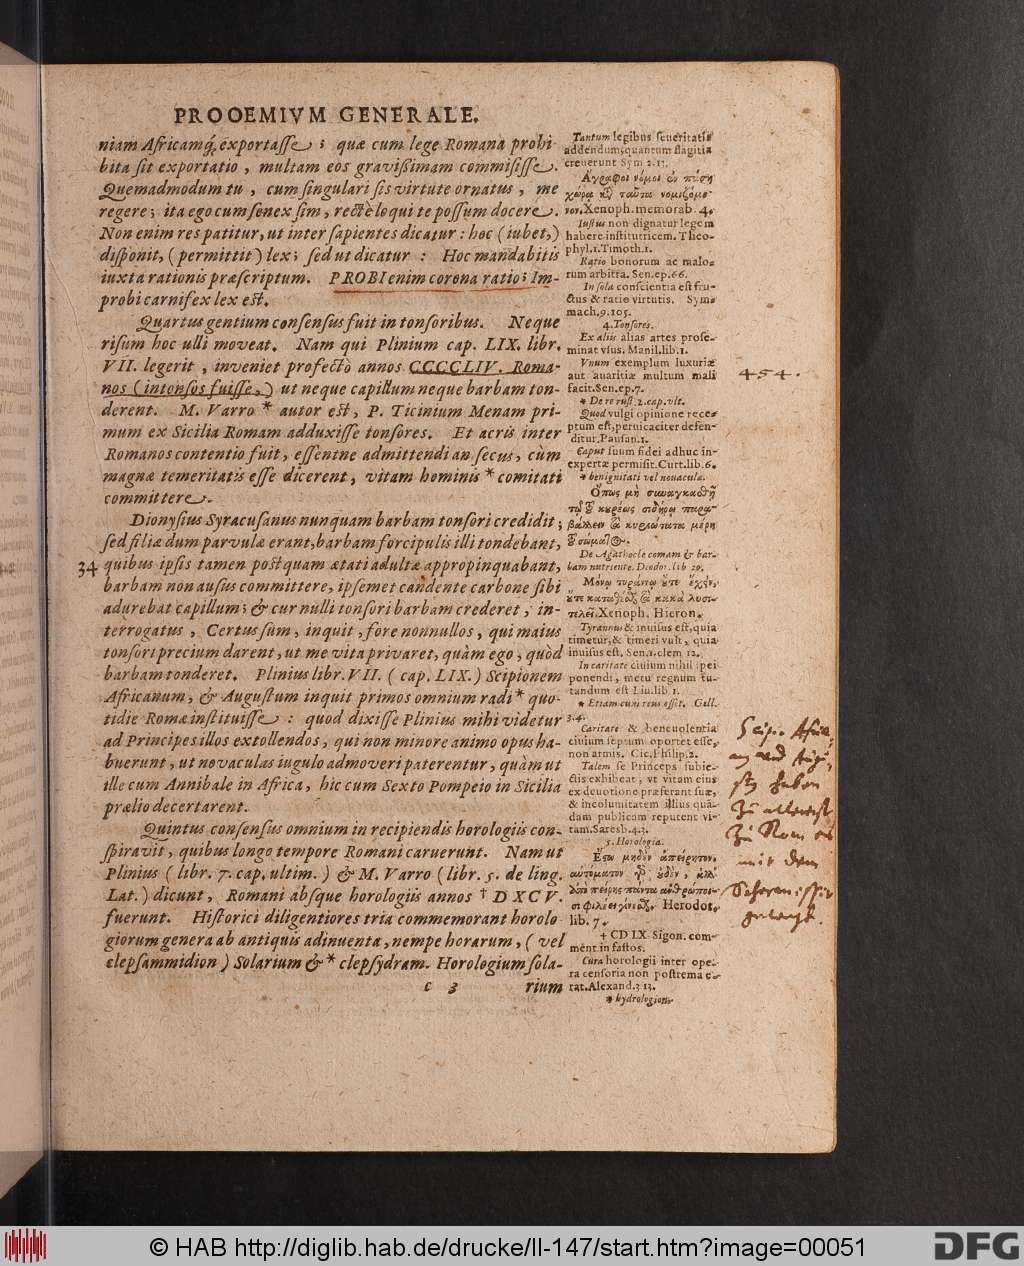 PROOEMIVM GENERALE.
niam Africamq́; exportasse; quæ cum lege Romana prohi
bita sit exportatio, multam eos gravißimam commisisse.
Quemadmodum tu, cum singulari sis virtute ornatus, me
regere; ita ego cum senex sim, rectè loqui te possum docere.
Non enim res patitur, ut inter sapientes dicatur: hoc (iubet,)
disponit, (permittit) lex; sed ut dicatur: Hoc mandabitis
iuxta rationis præscriptum. PROBI enim corona ratio; Im-
probi carnifex lex est.
Quartus gentium consensus fuit in tonsoribus. Neque
risum hoc ulli moveat. Nam qui Plinium cap. LIX. libr.
VII. legerit, inveniet profectò annos CCCCLIV. Roma-
nos (intonsos fuisse,) ut neque capillum neque barbam ton-
derent. M. Varro * autor est, P. Ticinium Menam pri-
mum ex Sicilia Romam adduxisse tonsores. Et acris inter
Romanos contentio fuit, essentne admittendi an secus, cùm
magnæ temeritatis esse dicerent, vitam hominis * comitati
committere.
Dionysius Syracusanus nunquam barbam tonsori credidit;
sed filiæ dum parvulæ erant, barbam forcipulis illi tondebant,
34 quibus ipsis tamen postquam ætati adultæ appropinquabant,
barbam non ausus committere, ipsemet candente carbone sibi
adurebat capillum; & cur nulli tonsori barbam crederet, in-
terrogatus, Certus sum, inquit, fore nonnullos, qui maius
tonsori precium darent, ut me vita privaret, quàm ego, quòd
barbam tonderet. Plinius libr. VII. (cap. LIX.) Scipionem
Africanum, & Augustum inquit primos omnium radi * quo-
tidie Romæ instituisse: quod dixisse Plinius mihi videtur
ad Principes illos extollendos, qui non minore animo opus ha-
buerunt, ut novaculas iugulo admoveri paterentur, quàm ut
ille cum Annibale in Africa, hic cum Sexto Pompeio in Sicilia
prælio decertarent.
Quintus consensus omnium in recipiendis horologiis con-
spiravit, quibus longo tempore Romani caruerunt. Nam ut
Plinius (libr. 7. cap. ultim.) & M. Varro (libr. 5. de ling.
Lat.) dicunt, Romani absque horologiis annos † DXCV.
fuerunt. Historici diligentiores tria commemorant horolo-
giorum genera ab antiquis adinuenta, nempe horarum, (vel
clepsammidion) Solarium & * clepsydram. Horologium sola-
c 3 rium
Tantum legibus seueritatis
addendum, quantum flagitia
creuerunt Sym 2.13.
Ἄγραφοι νόμοι οἱ ἐν πάσῃ
χώρᾳ κατὰ ταῦτα νομιζόμε-
νοι. Xenoph. memorab. 4.
Iustus non dignatur legem
habere institutricem. Theo-
phyl. 1. Timoth. 1.
Ratio bonorum ac malo-
rum arbitra. Sen. ep. 66.
In sola conscientia est fru-
ctus & ratio virtutis. Sym-
mach. 9. 105.
4. Tonsores.
Ex aliis alias artes prose-
minat vsus. Manil. lib. 1.
Vnum exemplum luxuriæ
aut auaritiæ multum mali
facit. Sen. ep. 7.
* De re rust. 2. cap. vlt.
Quod vulgi opinione rece-
ptum est, peruicaciter defen-
ditur. Pausan. 1.
Caput suum fidei adhuc in-
expertæ permisit. Curt. lib. 6.
* benignitati vel nouaculæ.
De Agathocle comam & bar-
bam nutriente. Diodor. lib 20.
Xenoph. Hieron.
Tyrannus & inuisus est, quia
timetur; & timeri vult, quia
inuisus est. Sen. 1. clem 12.
In caritate ciuium nihil spei
ponendi, metu regnum tu-
tandum est Liu. lib 1.
* Etiam cum reus esset. Gell.
3.4.
Caritate & beneuolentia
ciuium septum oportet esse,
non armis. Cic. Philip. 2.
Talem se Princeps subie-
ctis exhibeat, vt vitam eius
ex deuotione præferant suæ,
& incolumitatem illius quã-
dam publicam reputent vi-
tam. Saresb. 4.3.
5. Horologia.
Herodot.
lib. 7.
† CD IX Sigon. com-
ment. in fastos.
Cura horologii inter ope-
ra censoria non postrema e-
rat. Alexand. 3 13.
* hydrologion.
454.
Scip. Afric
zu Rom
© HAB http://diglib.hab.de/drucke/li-147/start.htm?image=00051
DFG